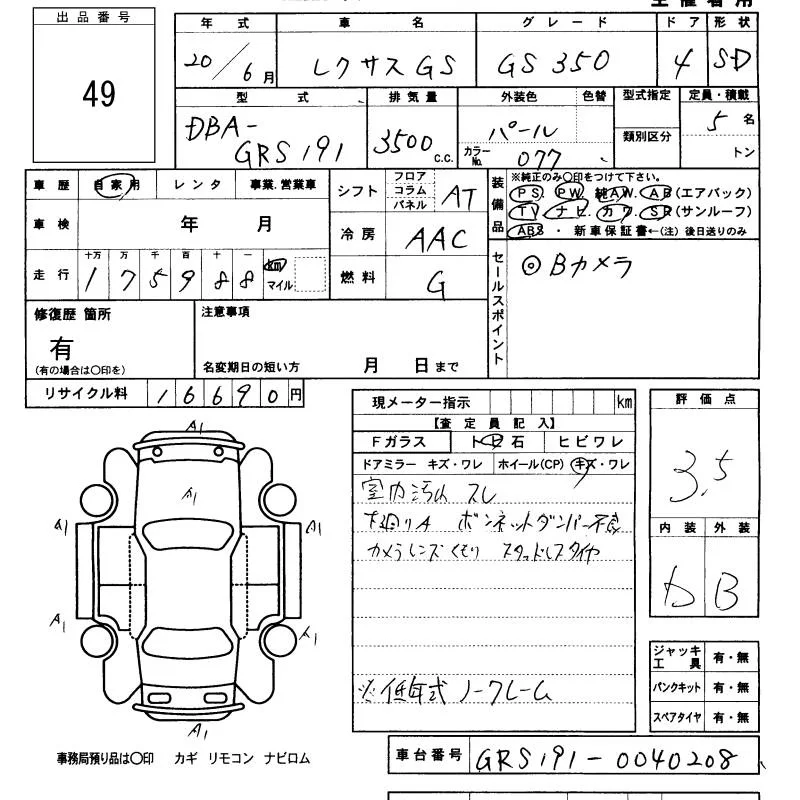 主催者用
出品番号
49
年式
20/6月
車名
レクサス GS
グレード
GS 350
ドア
4
形状
SD
型式
DBA-
GRS 191
排気量
3500 c.c.
外装色
パール
色替
カラーNo.
077
型式指定
類別区分
定員・積載
5 名
トン
車歴
自家用
レンタ
事業.営業車
車検
年 月
走行
十万 万 千 百 十 一
1 7 5 9 8 8
km
マイル
シフト
フロア
コラム
パネル
AT
冷房
AAC
燃料
G
装備品
※純正のみ〇印をつけて下さい。
PS. PW. 純AW. AB (エアバック)
TV ナビ. カワ. SR (サンルーフ)
ABS ・ 新車保証書←(注) 後日送りのみ
セールスポイント
◎ Bカメラ
修復歴 箇所
有
(有の場合は〇印を)
注意事項
名変期日の短い方 月 日まで
リサイクル料
1 6 6 9 0 円
現メーター指示 km
【査定員記入】
Fガラス
ト ビ 石
ヒビワレ
ドアミラー キズ・ワレ
ホイール(CP) キズ・ワレ
室内汚れ スレ
下廻りA ボンネットダンパー不良
カメラレンズくもり スタッドレスタイヤ
※低年式 ノークレーム
評価点
3.5
内装
外装
B
A1
A1
A1
A1
A1
A1
A1
ジャッキ
工具
有・無
パンクキット
有・無
スペアタイヤ
有・無
事務局預り品は〇印 カギ リモコン ナビロム
車台番号
GRS191-0040208